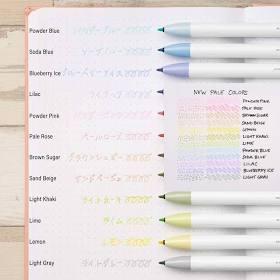 Powder Blue パウダーブルー
Soda Blue ソーダブルー
Blueberry Ice ブルーベリーアイス
Lilac ライラック
Powder Pink パウダーピンク
Pale Rose ペールローズ
Brown Sugar ブラウンシュガー
Sand Beige サンドベージュ
Light Khaki ライトカーキ
Lime ライム
Lemon レモン
Light Gray ライトグレー
NEW PALE COLORS
POWDER PINK
PALE ROSE
BROWN SUGAR
SAND BEIGE
LEMON
LIGHT KHAKI
LIME
POWDER BLUE
SODA BLUE
LILAC
BLUEBERRY ICE
LIGHT GRAY